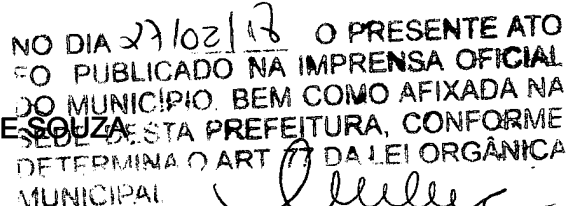 NO DIA 27/02/18 O PRESENTE ATO
FO PUBLICADO NA IMPRENSA OFICIAL
DO MUNICÍPIO. BEM COMO AFIXADA NA
E SOUZA
SEDE DESTA PREFEITURA, CONFORME
DETERMINA O ART 77 DA LEI ORGÂNICA
MUNICIPAL